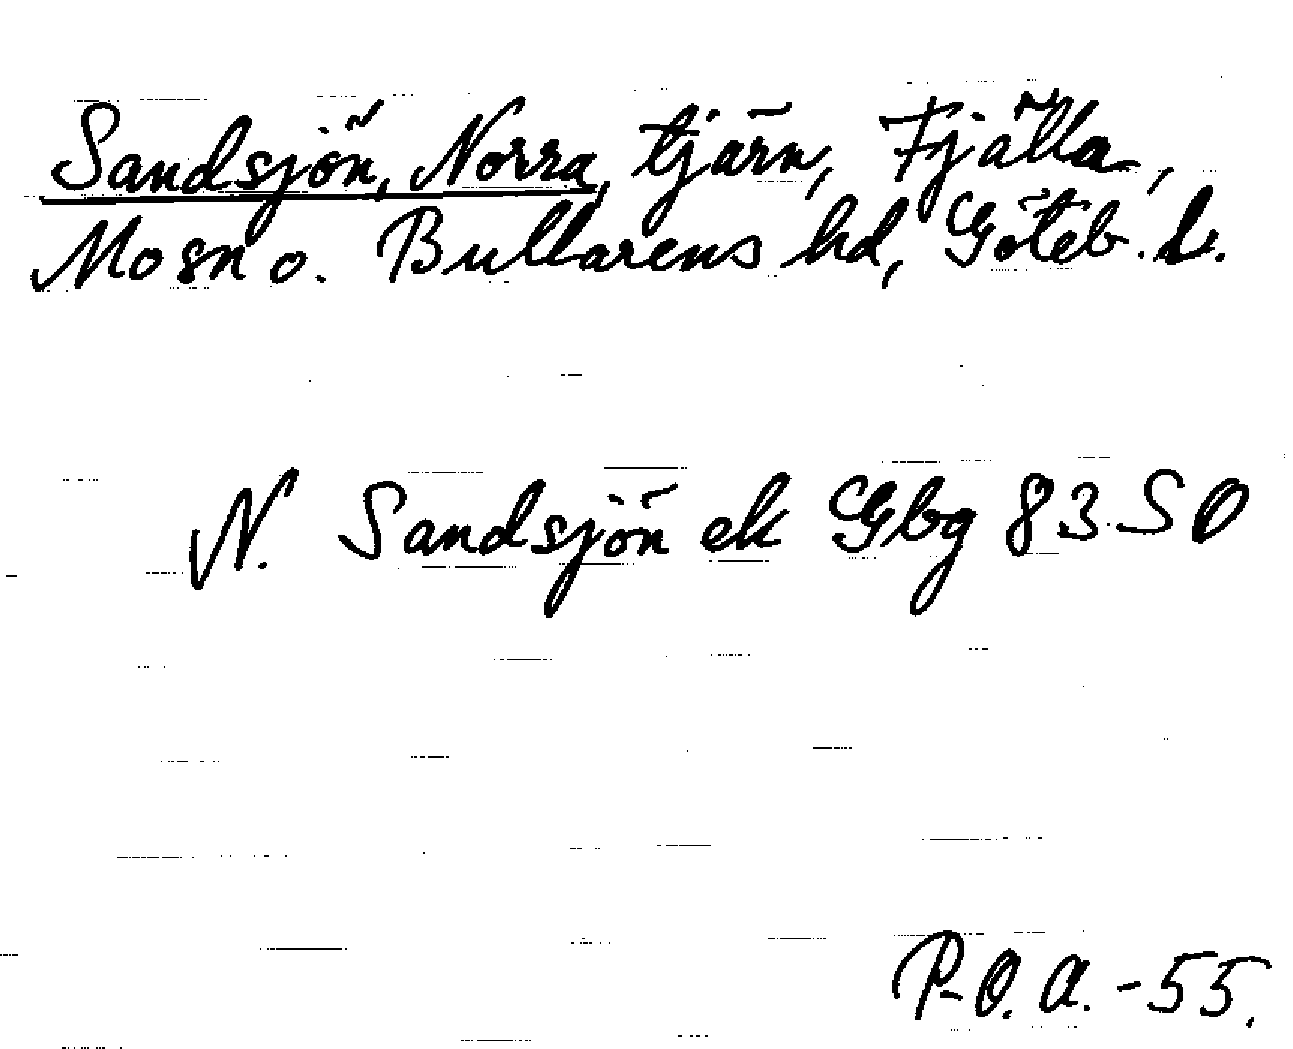 Sandsjön, Norra, tjärn, Fjälla,
Mo sn o. Bullarens hd, Göteb. l.
N. Sandsjön ek Gbg 83 SO
P-O. A. -55.